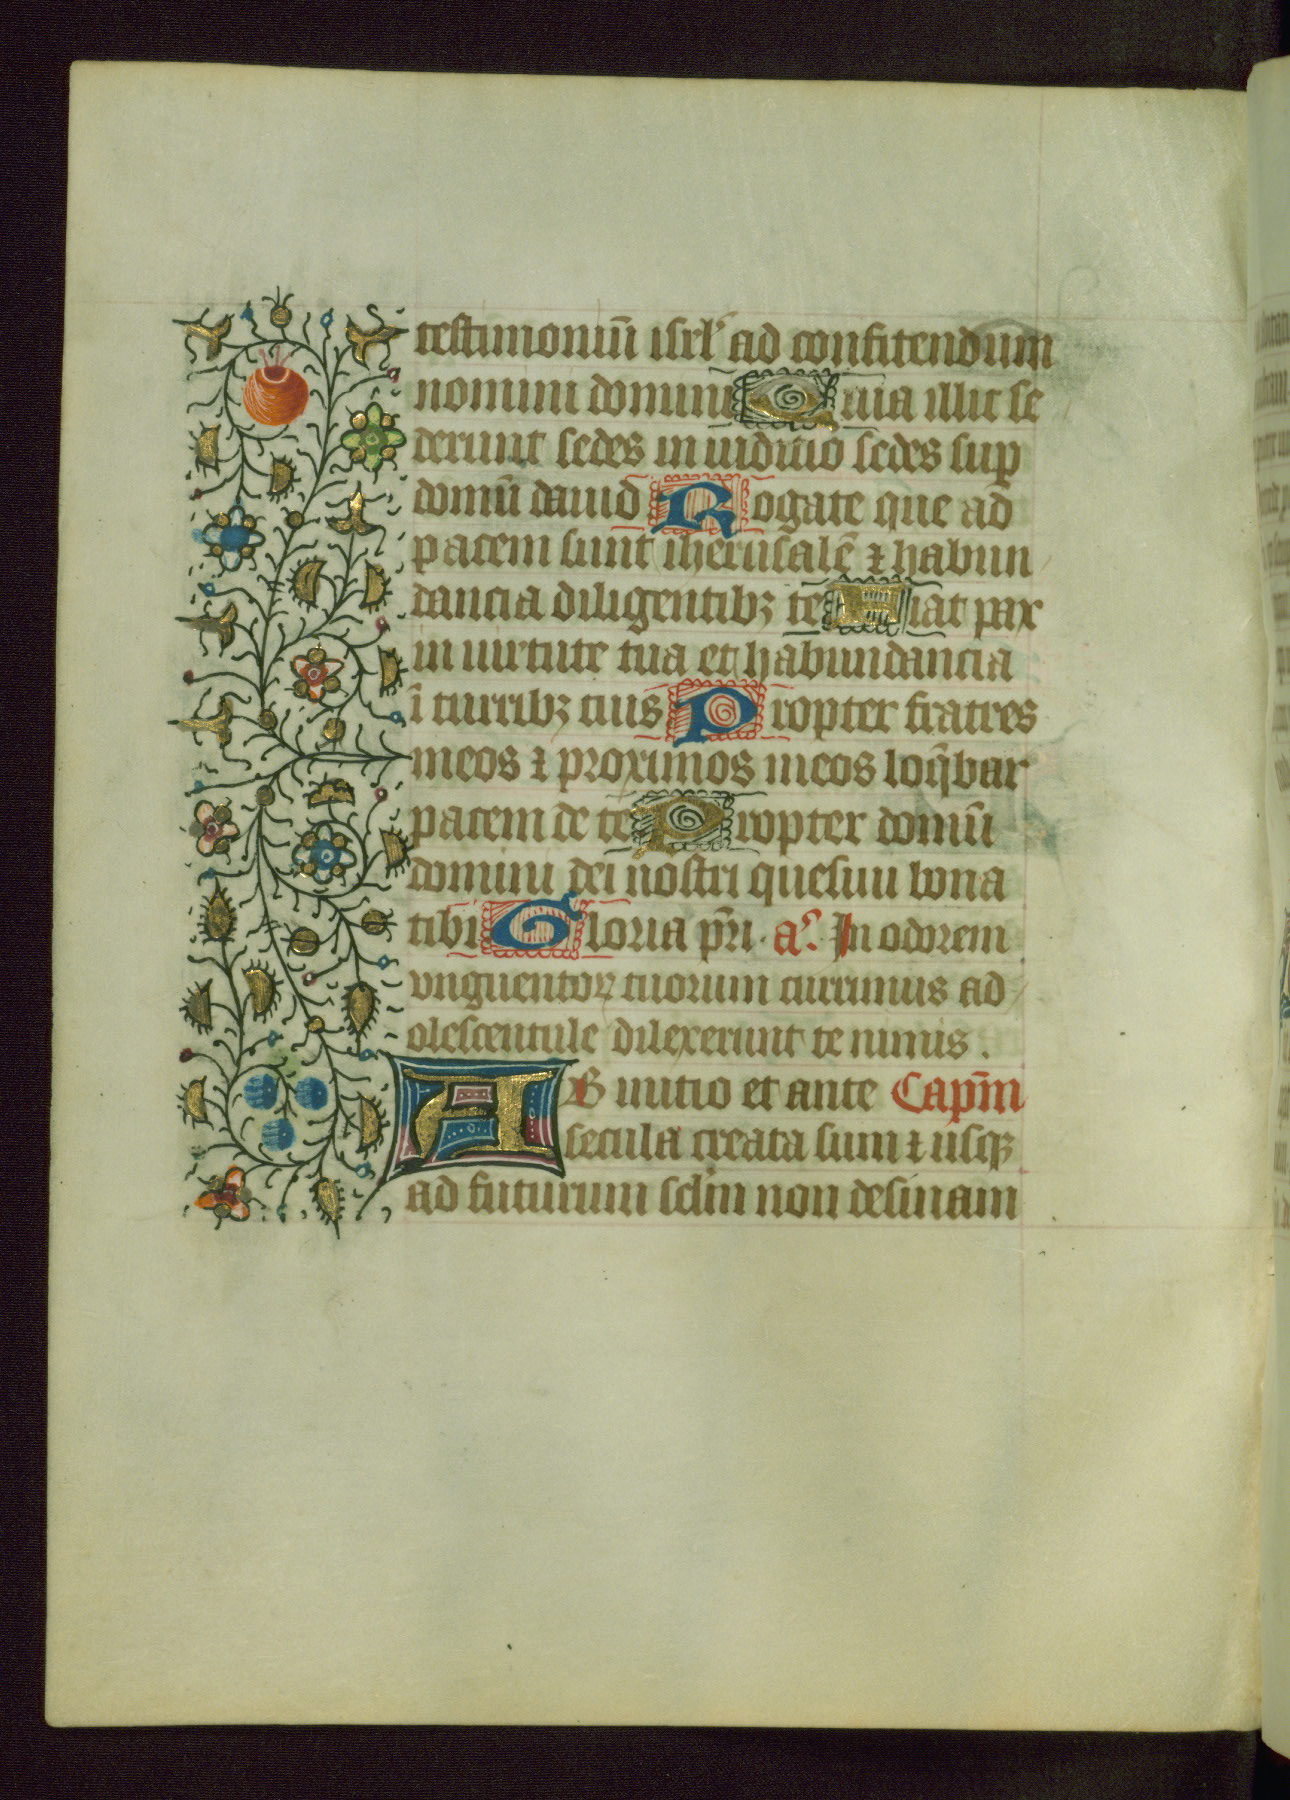 testimoniū isrl' ad confitendum
nomini domini Quia illic se
derunt sedes in iuditio sedes sup
domū dauid Rogate que ad
pacem sunt iherusalē ⁊ habun
dancia diligentibꝫ te Fiat pax
in uirtute tua et habundancia
ī turribꝫ tuis Propter fratres
meos ⁊ proximos meos loq̄bar
pacem de te Propter domū
domini dei nostri quesiui bona
tibi Gloria p̄ri. aᵃ. In odorem
vnguentoꝝ tuorum currimus ad
olescentule dilexerunt te nimis.
AB initio et ante Cap̄m
secula creata sum ⁊ usqꝫ
ad futurum sclm̄ non desinam